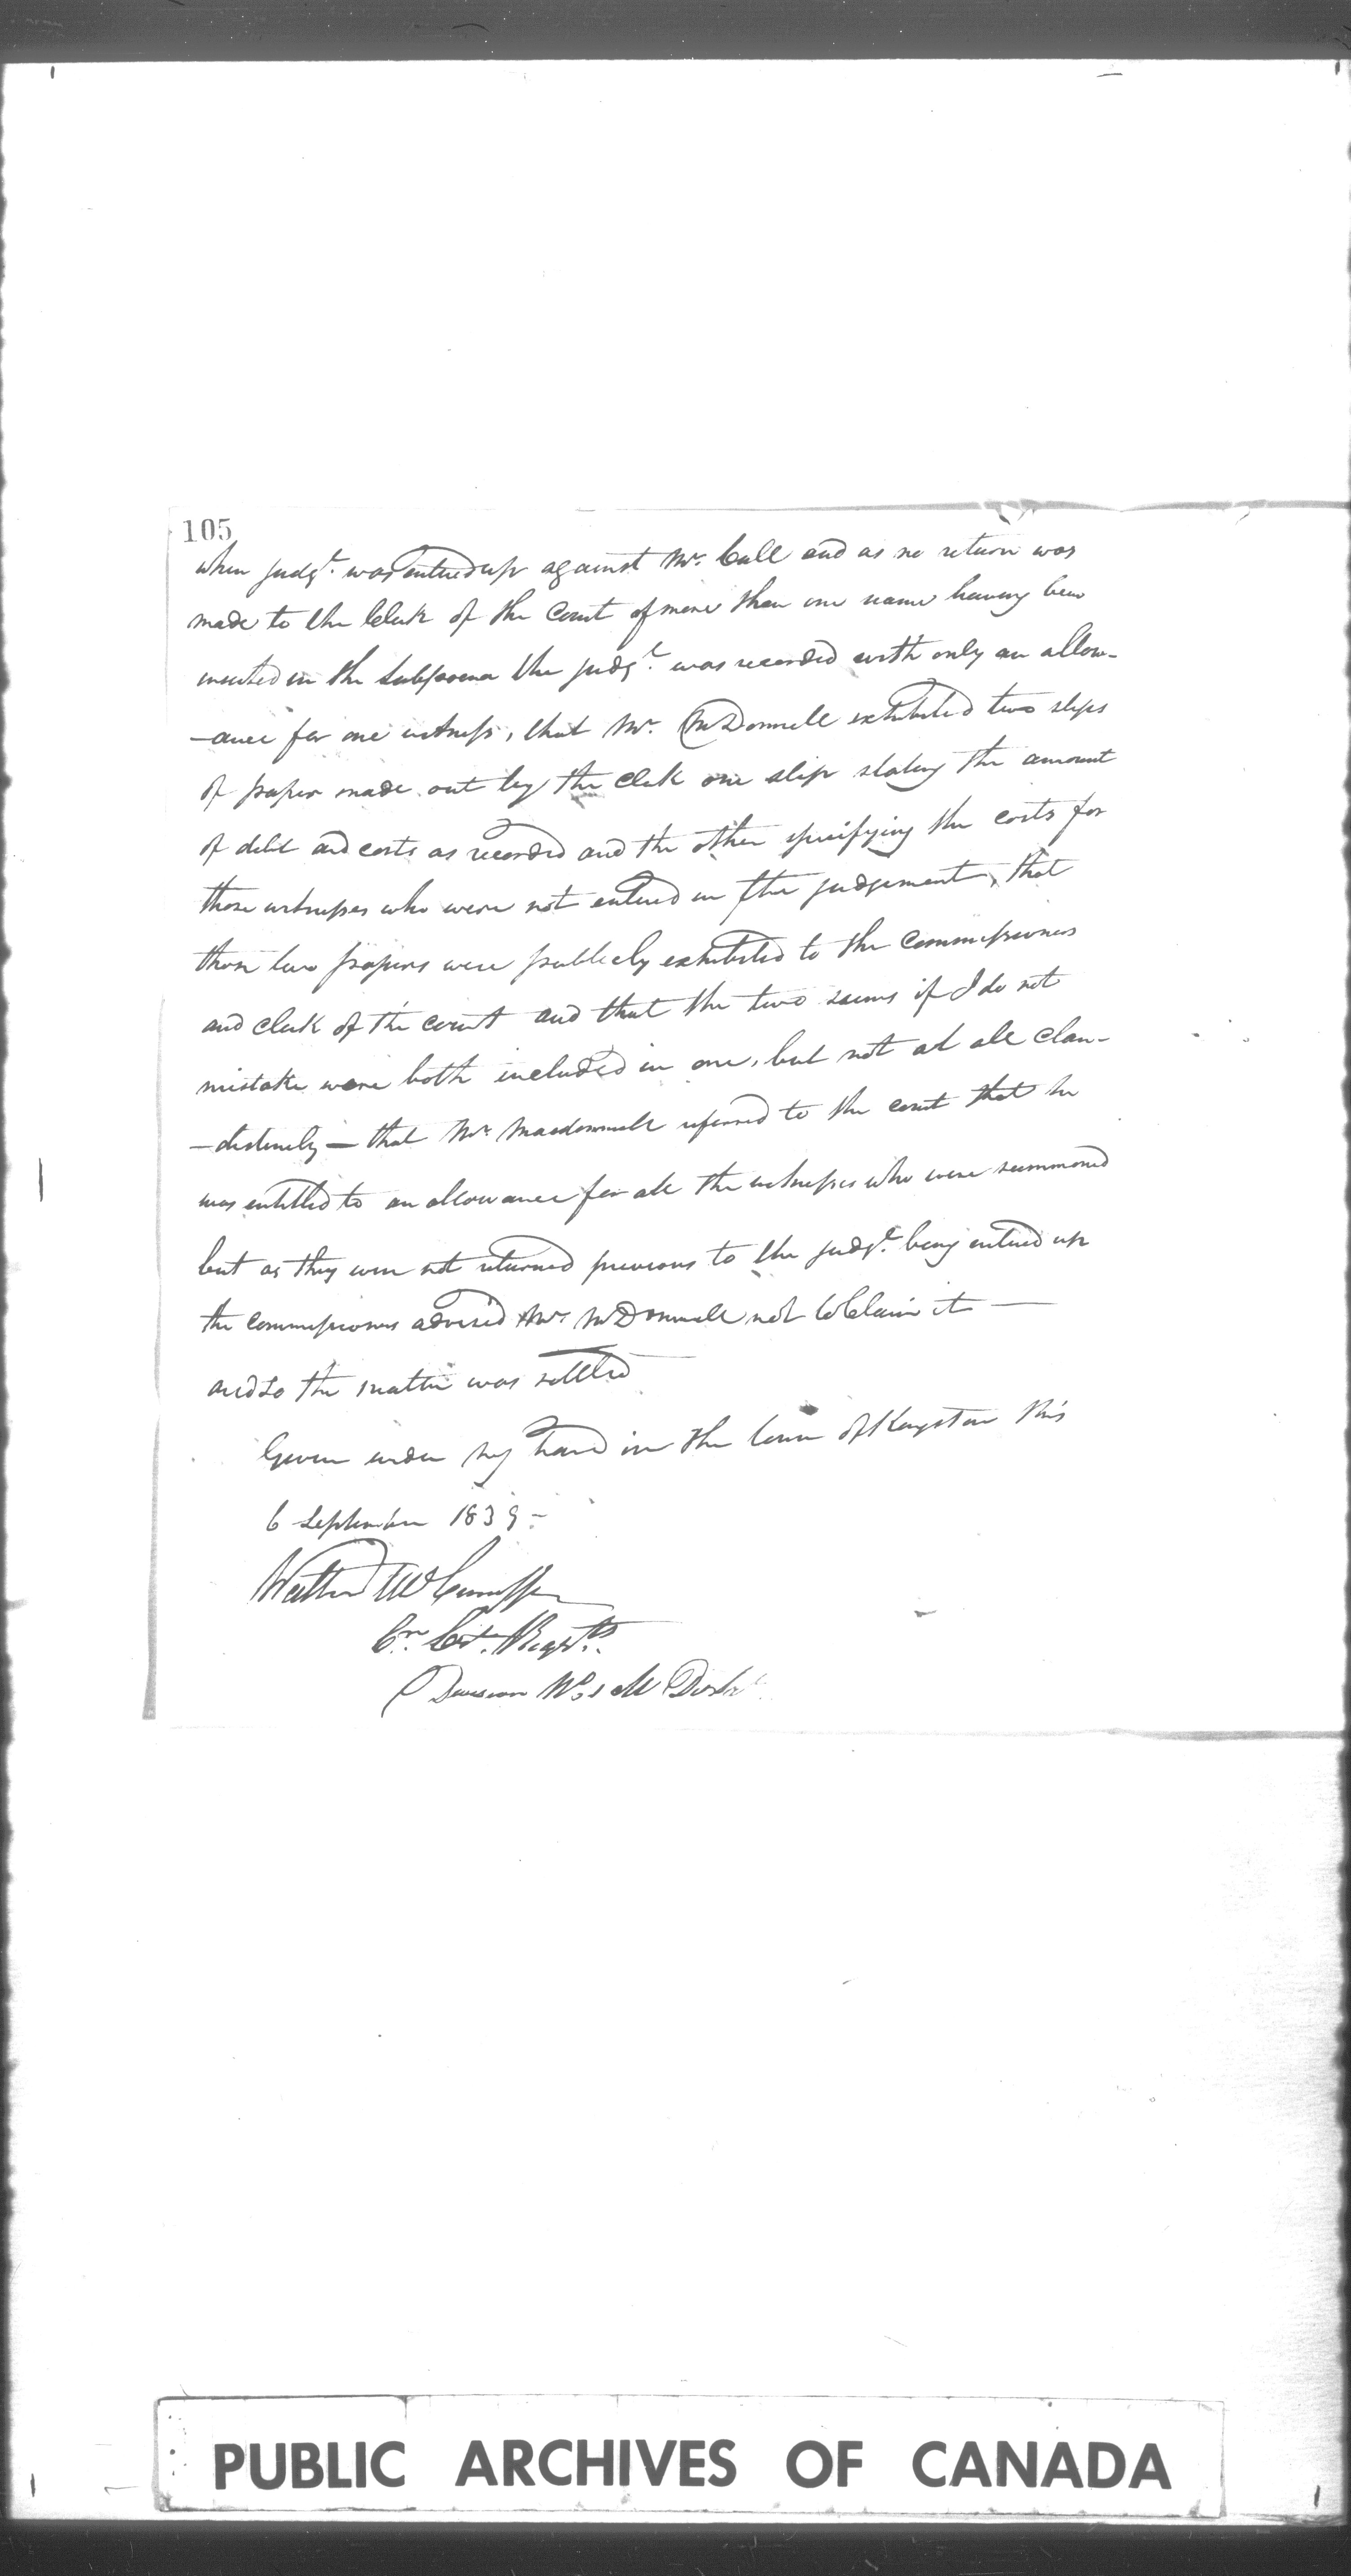 105
when judgt. was entered up against Mr. Call and as no return was
made to the Clerk of the Court of more than one name having been
inserted in the Subpoena the judgt. was recorded with only an allow-
-ance for one witness, that Mr. McDonnell exhibited two slips
of paper made out by the Clerk one slip stating the amount
of debt and costs as recorded and the other specifying the costs for
those witnesses who were not entered in the judgement, that
those two papers were publicly exhibited to the Commissioners
and Clerk of the court and that the two sums if I do not
mistake were both included in one, but not at all clan-
-destinely — that Mr. Macdonnell referred to the court that he
was entitled to an allowance for all the witnesses who were summoned
but as they were not returned previous to the judgt. being entered up
the commissioners advised Mr. McDonnell not to Claim it —
and so the matter was settled
Given under my hand in the town of Kingston this
6 September 1839 -
Walter
Cr. Ct. Requts.
Division No. 1 M Dist.
PUBLIC ARCHIVES OF CANADA